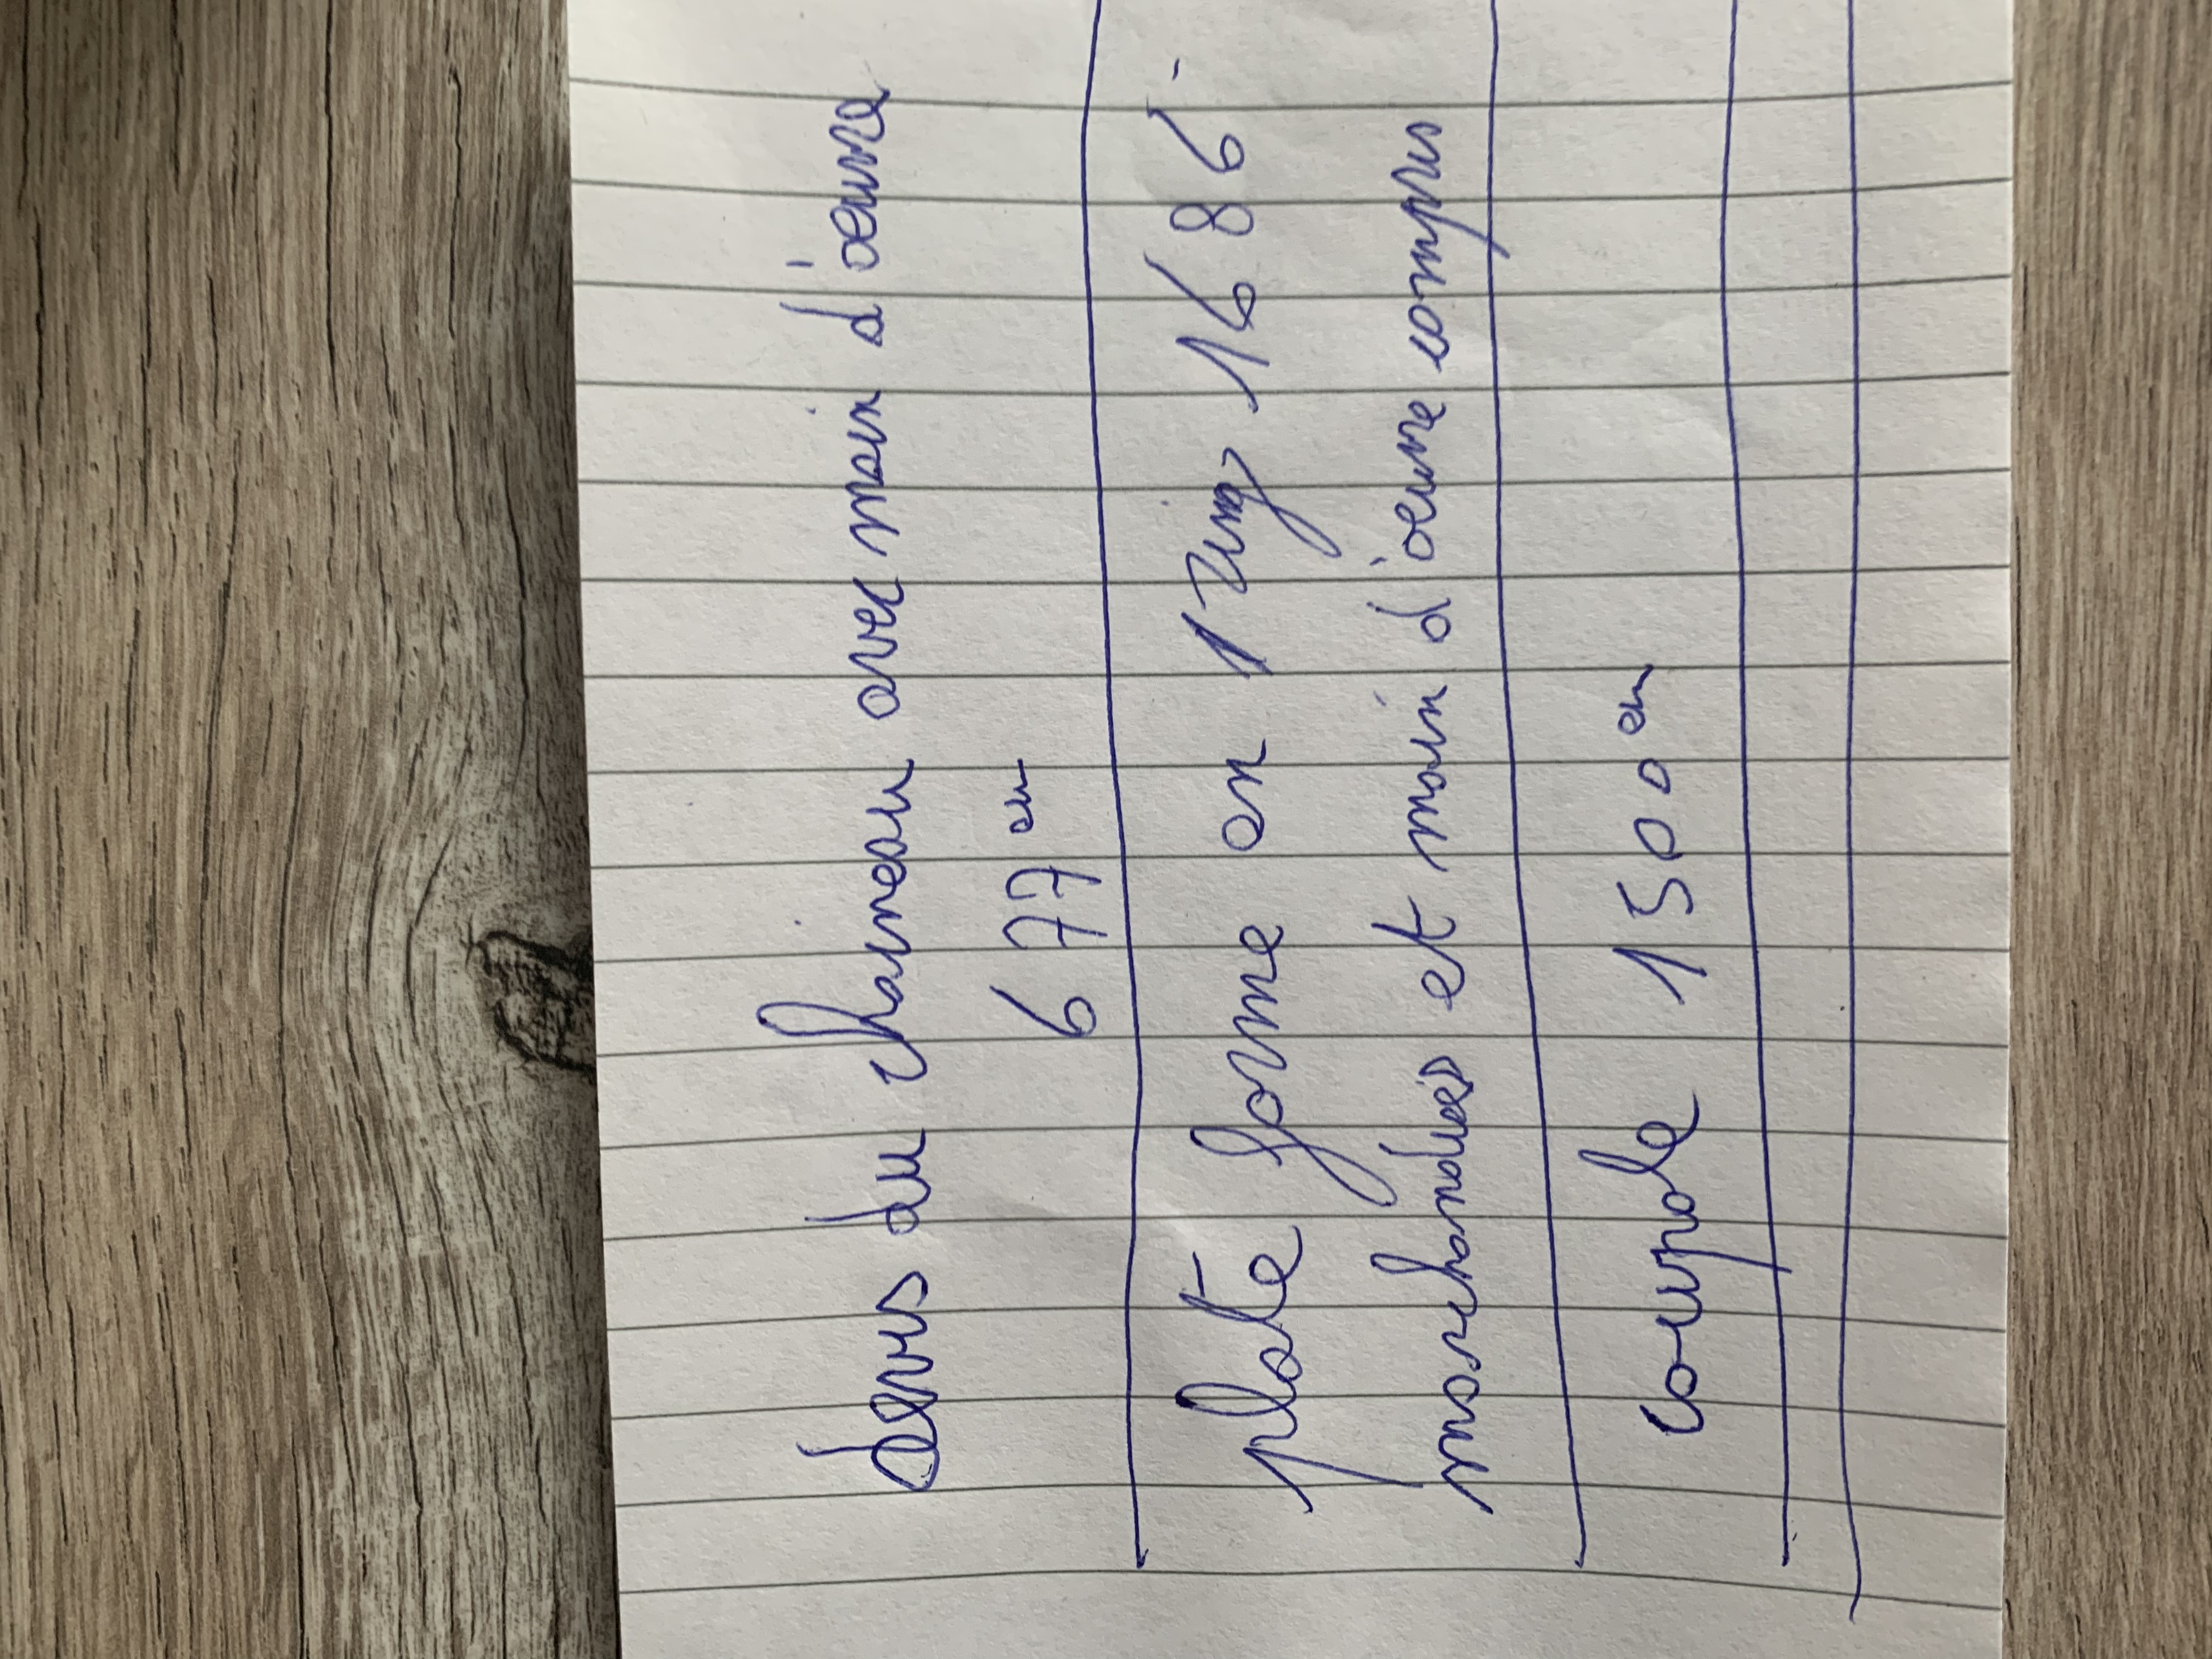 devis du chaineau avec main d'oeuvre
677 eu
plate forme en 1 zing 1686
marchandises et main d'oeuvre compris
coupole 1500 eu